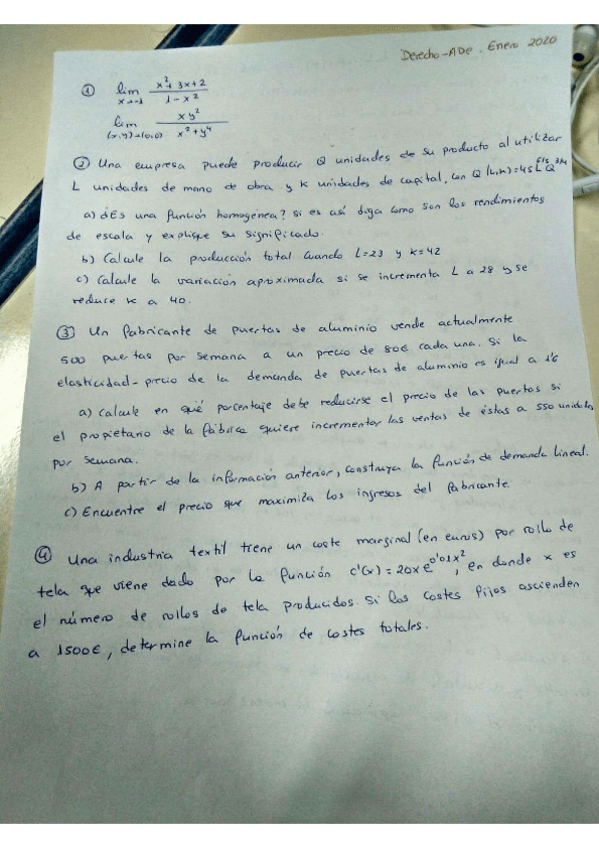 Derecho-ADE. Enero 2020
① lim x→-1 x²+3x+2 / 1-x²
lim (x,y)→(0,0) xy² / x²+y⁴
② Una empresa puede producir Q unidades de su producto al utilizar
L unidades de mano de obra y K unidades de capital, con Q(L,K)=45L Q^3/4
a) ¿Es una función homogénea? Si es así diga como son los rendimientos
de escala y explique su significado.
b) Calcule la producción total cuando L=23 y K=42
c) Calcule la variación aproximada si se incrementa L a 28 y se
reduce K a 40.
③ Un fabricante de puertas de aluminio vende actualmente
500 puertas por semana a un precio de 80€ cada una. Si la
elasticidad-precio de la demanda de puertas de aluminio es igual a 1'6
a) Calcule en qué porcentaje debe reducirse el precio de las puertas si
el propietario de la fábrica quiere incrementar las ventas de éstas a 550 unidades
por semana.
b) A partir de la información anterior, construya la función de demanda lineal.
c) Encuentre el precio que maximiza los ingresos del fabricante.
④ Una industria textil tiene un coste marginal (en euros) por rollo de
tela que viene dado por la función c'(x)=20xe^0'01x², en donde x es
el número de rollos de tela producidos. Si los costes fijos ascienden
a 1500€, determine la función de costes totales.